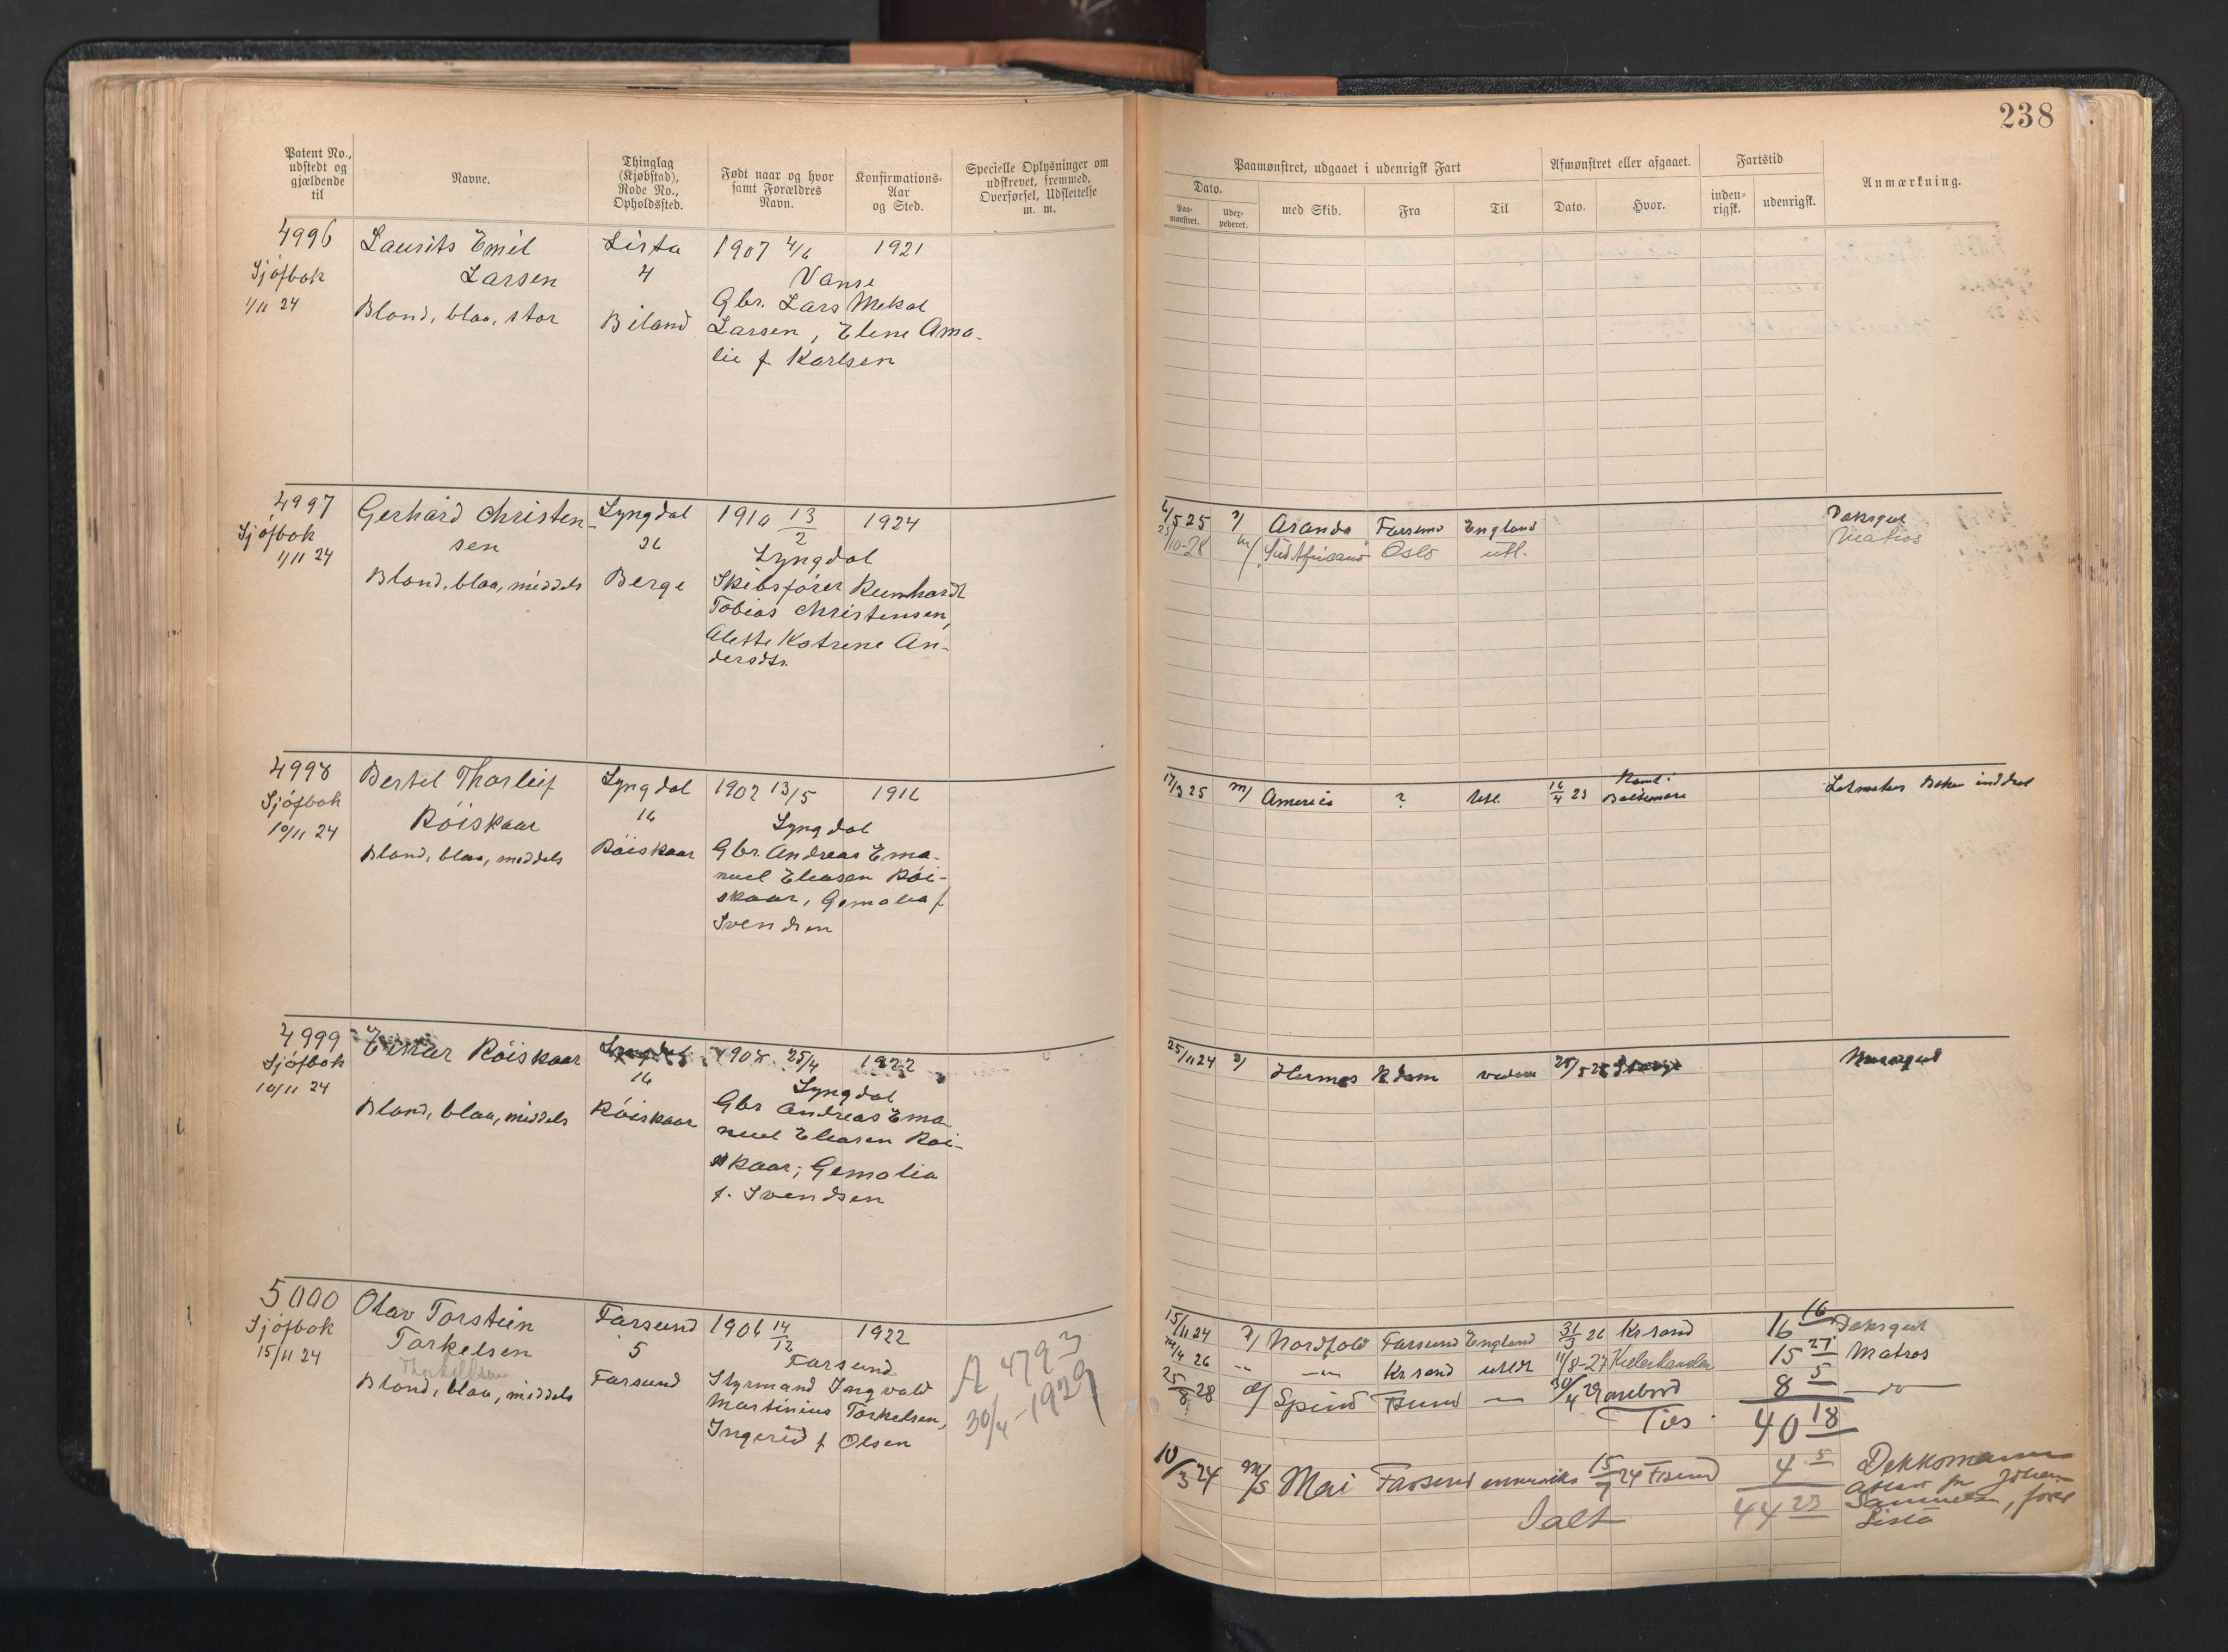 238
Patent No., udstedt og gjældende til
Navne.
Thinglag (Kjøbstad), Rode No., Opholdssted.
Født naar og hvor samt Forældres Navn.
Konfirmations-Aar og Sted.
Specielle Oplysninger om udskrevet, fremmed, Overførsel, Udslettelse m. m.
Paamønstret, udgaaet i udenrigsk Fart
Afmønstret eller afgaaet.
Fartstid
Anmærkning.
Dato.
Paa-mønstret.
Udex-pederet.
med Skib.
Fra
Til
Dato.
Hvor.
inden-rigsk.
udenrigsk.
4996
Sjøfbok
1/11 24
Laurits Emil
Larsen
Blond, blaa, stor
Lista
4
Biland
1907 4/6 1921
Vanse
Gbr. Lars Mekal
Larsen, Elene Ama-
lie f Karlsen
4997
Sjøfbok
1/11 24
Gerhard Christen-
sen
Blond, blaa, middels
Lyngdal
26
Berge
1910 13/2 1924
Lyngdal
Skibsfører
Tobias Christensen,
Alette Katrine An-
dersdtr.
25 Aranda Farsund England
23/10-28 m/ Oslo utl.
Dæksgut
Matros
4998
Sjøfbok
10/11 24
Bertel Thorleif
Röiskaar
Blond, blaa, middels
Lyngdal
16
Röiskaar
1902 13/5 1916
Lyngdal
Gbr. Andreas Ema-
nuel Eliasen Röi-
skaar, Gemalia f
Svendsen
17/3 25 m/ America ? Utl. 16/4 Baltimore
4999
Sjøfbok
10/11 24
Einar Röiskaar
Blond, blaa, middels
Lyngdal
16
Röiskaar
1908 25/4 1922
Lyngdal
Gbr Andreas Ema
nuel Eliasen Röi-
skaar; Gemalia
f. Svendsen
25/11 24 Hermes R.dam
5000
Sjøfbok
15/11 24
Olav Torstein
Torkelsen
Blond, blaa, middels
Farsund
5
Farsund
1906 14/12 1922
Farsund
Styrmand Ingvald
Martinius Torkelsen,
Ingerid f Olsen
A 4793
30/4-1929
15/11 24 Nordfold Farsund England 31/3 26 Kr.sand 16 16 Dæksgut
26 Kr sand utldt 11/8-27 Kielerkanalen 15 27 Matros
25/8 28 Spind Fsund 30/4 29 8 5 do
40 18
10/3 24 m/s Mai Farsund 15/7 24 Fsund 4 5 Dekksmann
Ialt 44 23
Lista